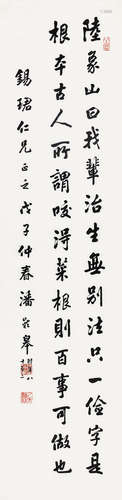 陸象山曰我輩治生無別法只一儉字是
根本古人所謂咬得菜根則百事可做也
錫珺仁兄正之戊子仲春潘齡皋